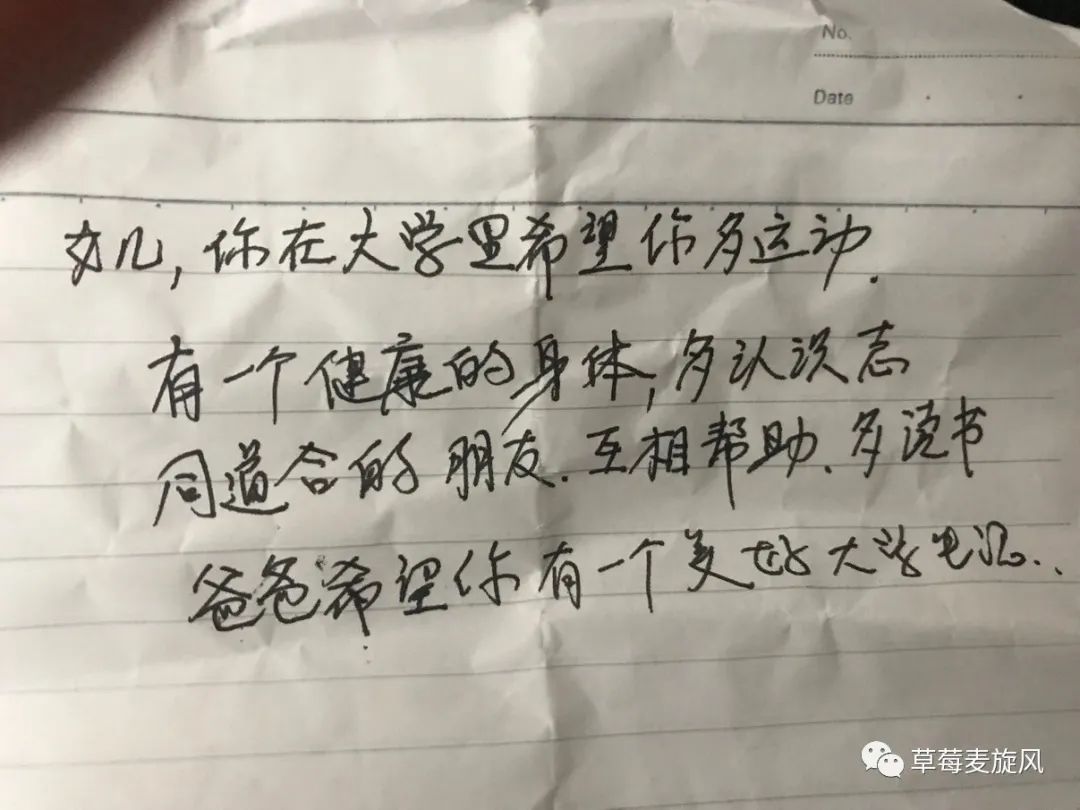 No.
Date
女儿,你在大学里希望你多运动.
有一个健康的身体,多认识志
同道合的朋友.互相帮助、多读书
爸爸希望你有一个美好大学生活..
草莓麦旋风